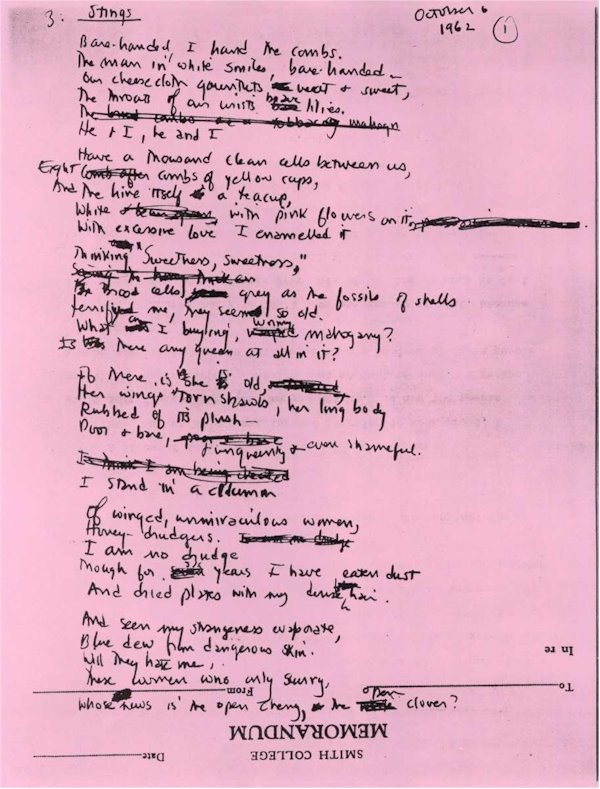 3. Stings
October 6
1962 1
Bare-handed, I hand the combs.
The man in white smiles, bare-handed,
Our cheesecloth gauntlets neat & sweet,
The throats of our wrists brave lilies.
He & I, he and I
Have a thousand clean cells between us,
Eight combs of yellow cups,
And the hive itself a teacup,
White with pink flowers on it,
With excessive love I enamelled it
Thinking "Sweetness, sweetness,"
Brood cells, grey as the fossils of shells
Terrify me, they seem so old.
What am I buying, wormy mahogany?
Is there any queen at all in it?
If there is, she is old,
Her wings torn shawls, her long body
Rubbed of its plush —
Poor & bare, & unqueenly & even shameful.
I think I am being cheated
I stand in a column
Of winged, unmiraculous women,
Honey-drudgers.
I am no drudge
Though for years I have eaten dust
And dried plates with my dense hair.
And seen my strangeness evaporate,
Blue dew from dangerous skin.
Will they hate me,
These women who only scurry,
Whose news is the open cherry, the open clover?
In re
To
From
MEMORANDUM
SMITH COLLEGE
Date